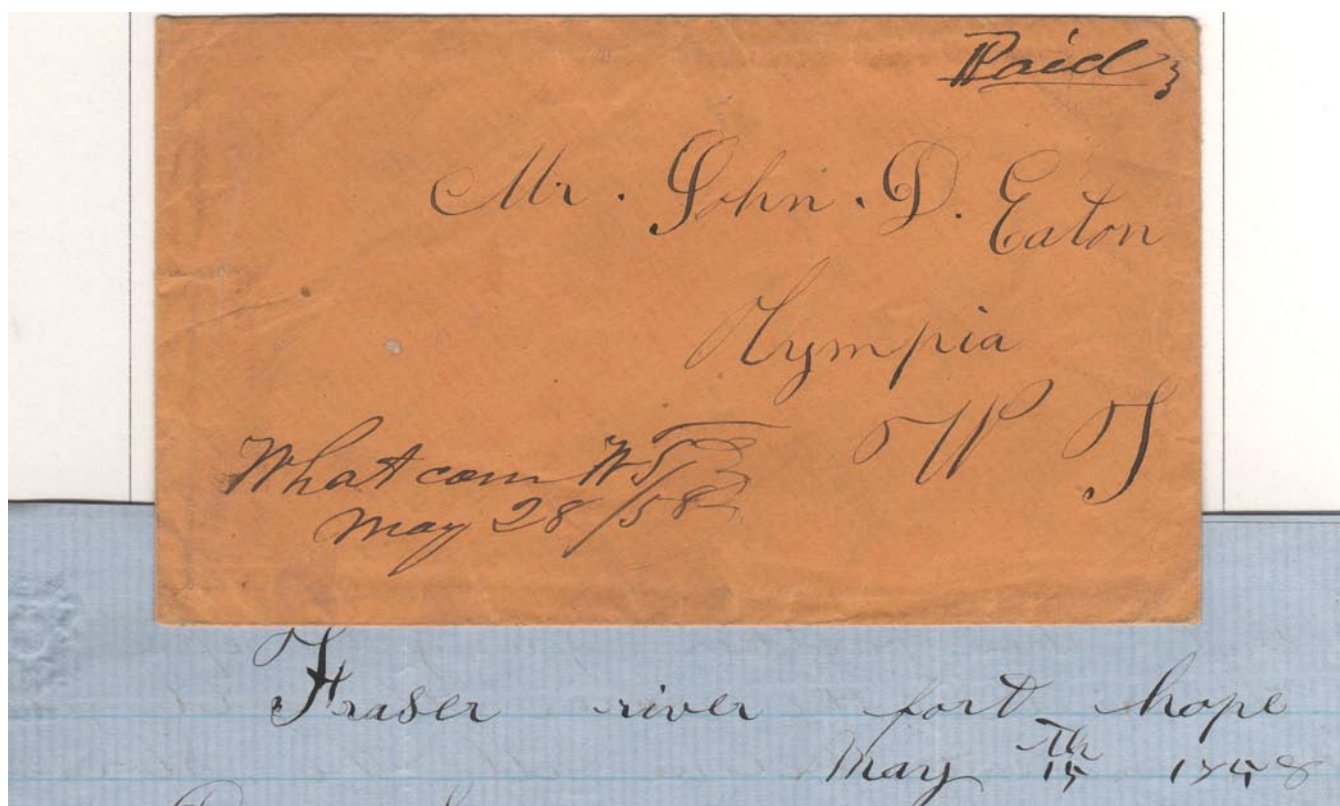 Paid 3
Mr. John. D. Eaton
Olympia
W T
Whatcom W T
May 28/58
Fraser river fort hope
May 15th 1858